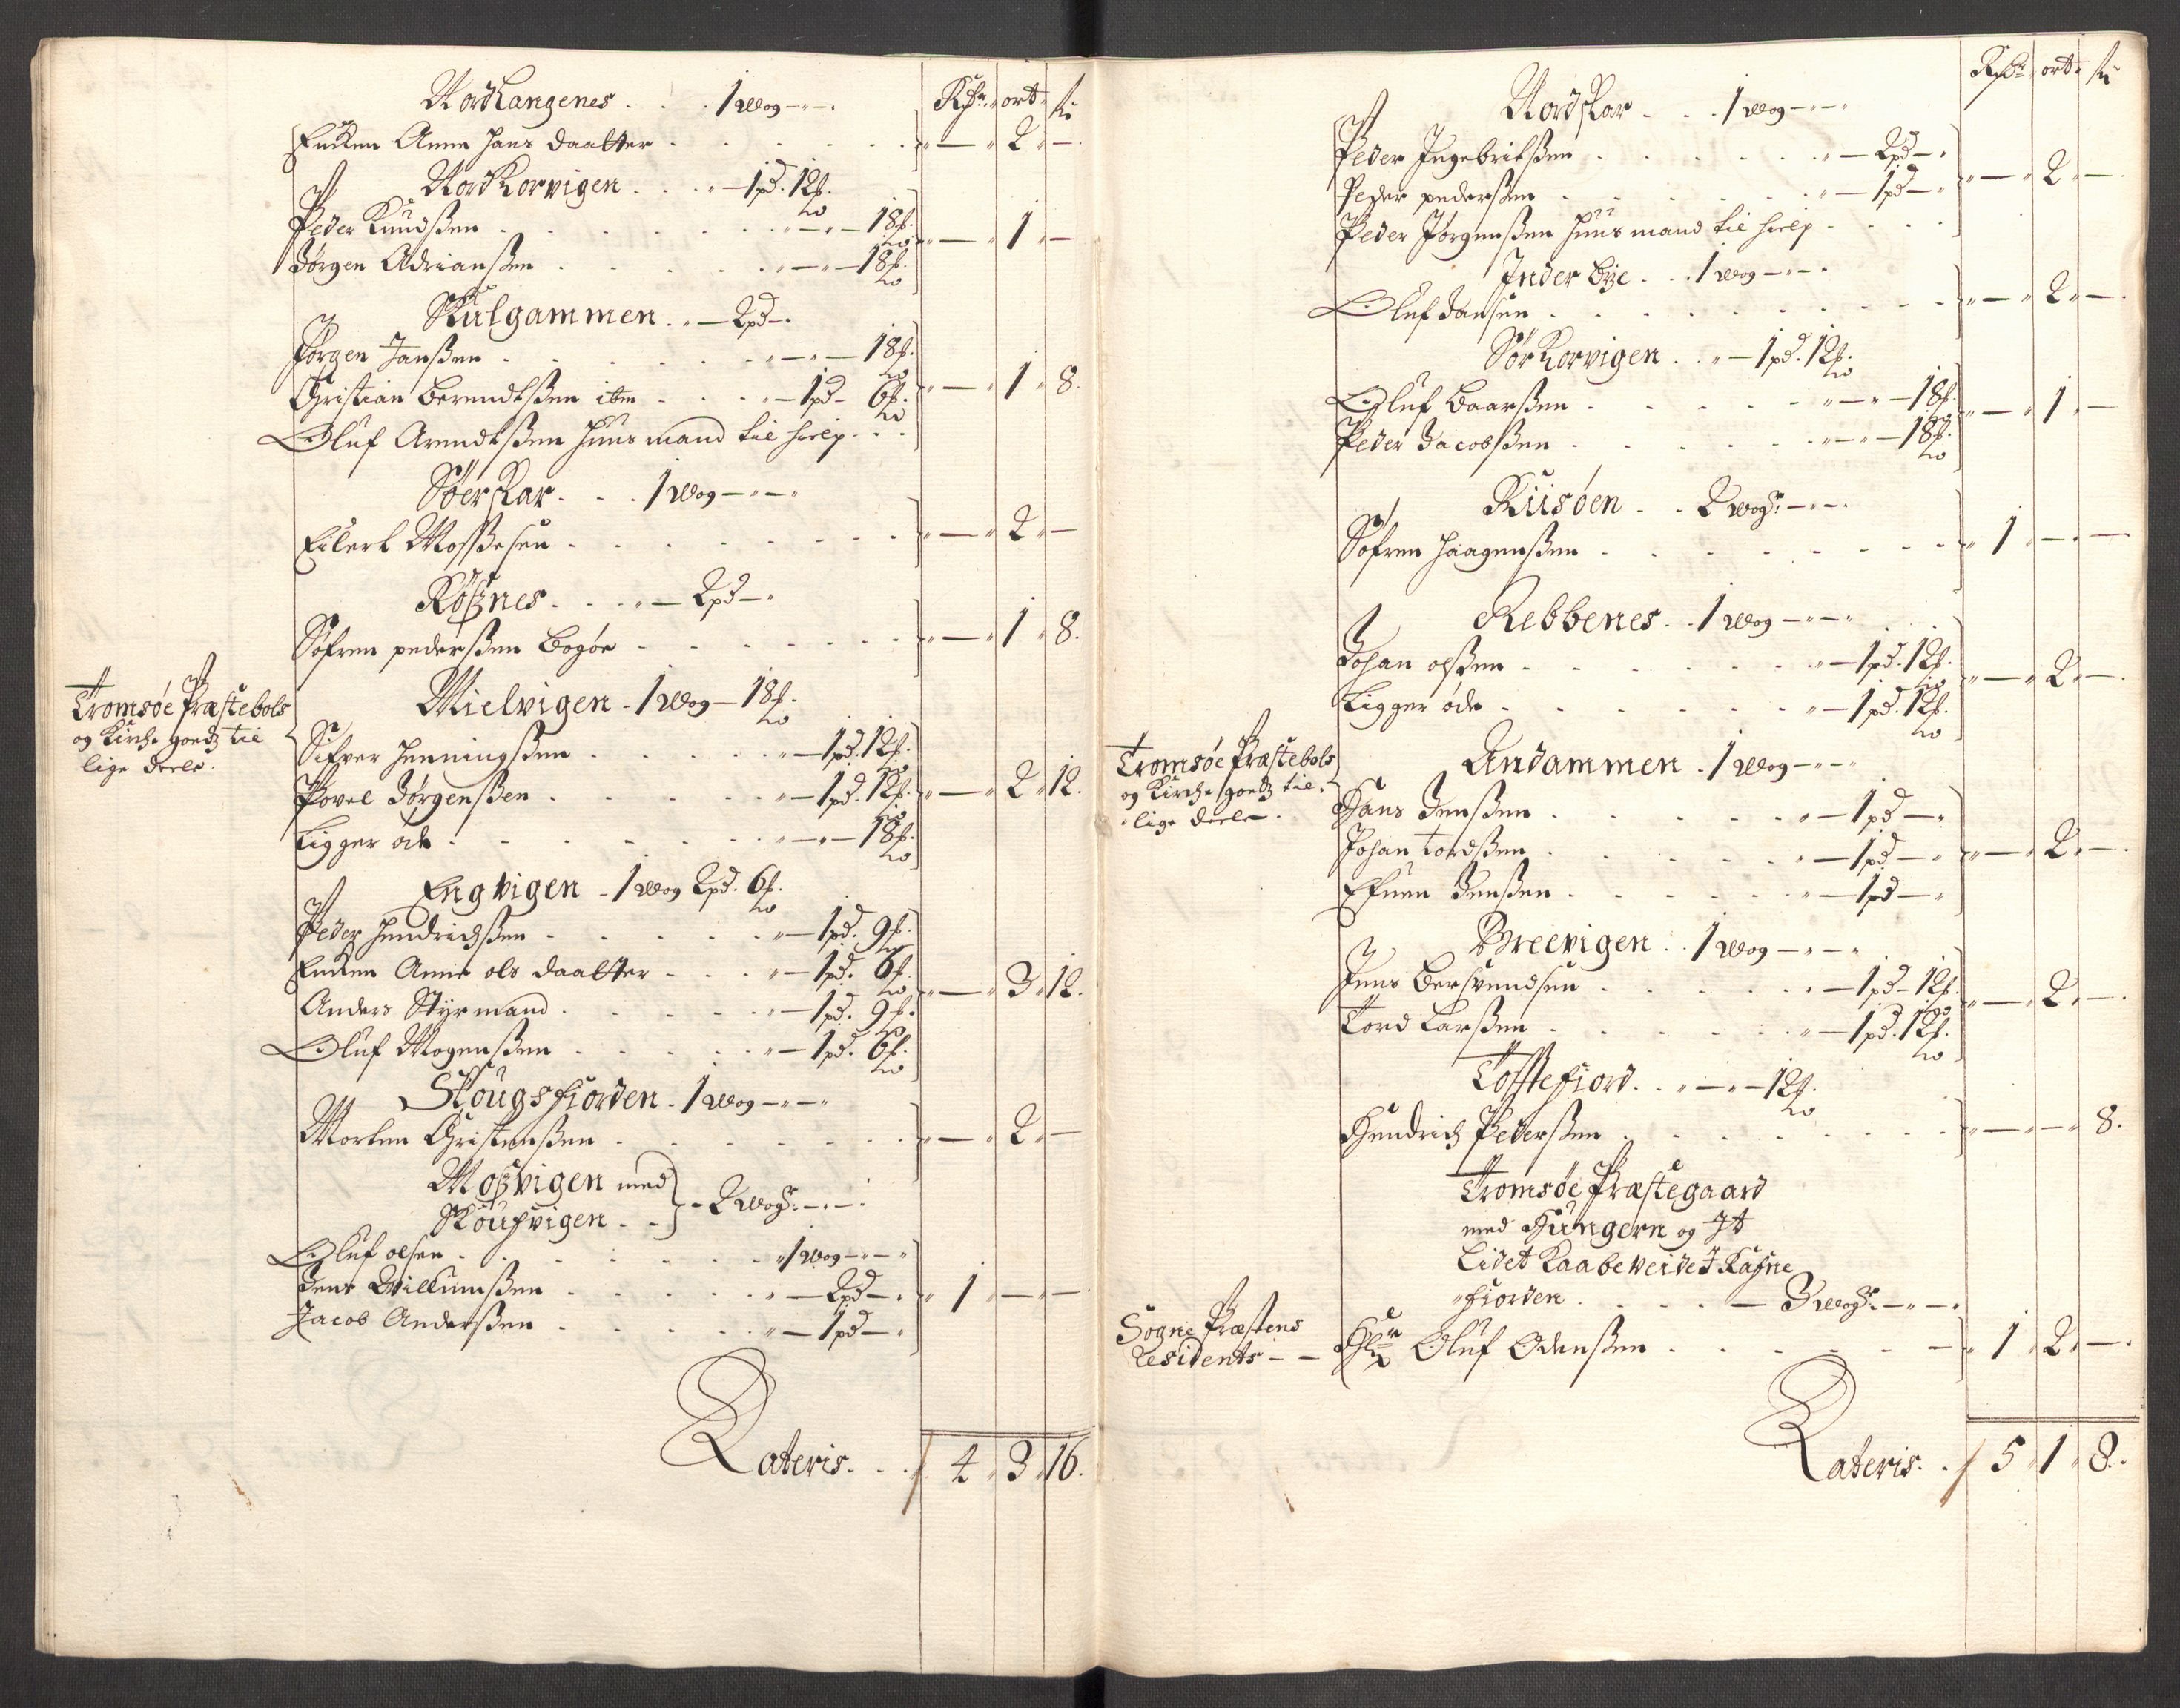 Rdr. ort. sk
Nordlangenes . . . 1 wog -"-
Encken Anne Hans daatter . . . . . "— " 2 " —
Nordkorvigen . . . "—1 pd. 12 f.
Peder Knudsßen . . . . . "—"— 18 f.
Jørgen Adrianßen . . . . . "—"— 18 f. "— " 1 " —
Skulgammen . "— 2 pd —"
Jørgen Janßen . . . . . "—"— 18 f.
Christian Berendtßen ibm . . . "— 1 pd — 6 f. "— " 1 " 8.
Oluf Arendtßen Huusmand til hielp . . .
Søerskar . . . 1 wog —"—"
Eilert Moßesen . . . . . "— " 2 " —
Røßnes . . . "— 2 pd —"
Søfren pederßen Bogøe . . . . . "— " 1 " 8.
Tromsøe Præstebols
og Kirche goedz til
lige deele.
Mielvigen . 1 wog — 18 f.
Sifver Henningßen . . . . . "— 1 pd. 12 f.
Povel Jørgenßen . . . . . "— 1 pd. 12 f. "— " 2 " 12.
Ligger øde . . . . . "—"— 18 f.
Engvigen - 1 wog 2 pd. 6 f.
Peder Hendrichßen . . . . . "— 1 pd. 9 f.
Encken Anne ols daatter . . . "— 1 pd. 6 f.
Anders Styrmand . . . . . "— 1 pd. 9 f. "— " 3 " 12.
Oluf Mogenßen . . . . . "— 1 pd. 6 f.
Skougsfiorden . 1 wog —"—"
Morten Christenßen . . . . . "— " 2 " —
Moßvigen med
Skoufvigen . . } - 2 wogr. —"—
Oluf olsen . . . . . "1 wog —"—"
Jens Willumßen . . . . . "— 2 pd —" " 1 " — " —
Jacob Anderßen . . . . . "— 1 pd —"
Lateris . . . 4 " 3 " 16.
Rdr. ort. sk
Nordskar . . . 1 wog —"—"
Peder Ingebritßen . . . . . "— 2 pd —"
Peder pederßen . . . . . "— 1 pd —" "— " 2 " —
Peder Jørgenßen Huusmand til hielp . . .
Inderbye . . . 1 wog —"—
Oluf Jansen . . . . . "— " 2 " —
Sørkorvigen . . "— 1 pd. 12 f.
Oluf Baarßen . . . . . "—"— 18 f.
Peder Jacobßen . . . . . "—"— 18 f. "— " 1 " —
Riisøen . . 2 wogr. —"—
Søfren Haagenßen . . . . . " 1 " — " —
Rebbenes . . 1 wog —"—"
Johan olßen . . . . . "— 1 pd. 12 f.
Ligger øde . . . . . "— 1 pd. 12 f. "— " 2 " —
Tromsøe Præstebols
og Kirche goedz til-
lige deele.
Andammen . 1 wog —"—"
Hans Jenßen . . . . . "— 1 pd —"
Johan Tordßen . . . . . "— 1 pd —" "— " 2 " —
Efuen Jenßen . . . . . "— 1 pd —"
Breevigen . . 1 wog —"—"
Jens Bersvendsen . . . . . "— 1 pd — 12 f.
Tord Larßen . . . . . "— 1 pd. 12 f. "— " 2 " —
Toftefiord . . "—"— 12 f.
Hendrich Pederßen . . . . . "— " — " 8.
Tromsøe Præstegaard
med Hungern og It
Lidet Kaabeveide I Kafne
fiorden . . . . — 3 wogr. —"—"
Sogne Præstens
Residents — —
Hr. Oluf Odenßen . . . . . " 1 " 2 " —
Lateris . . 5 " 1 " 8.